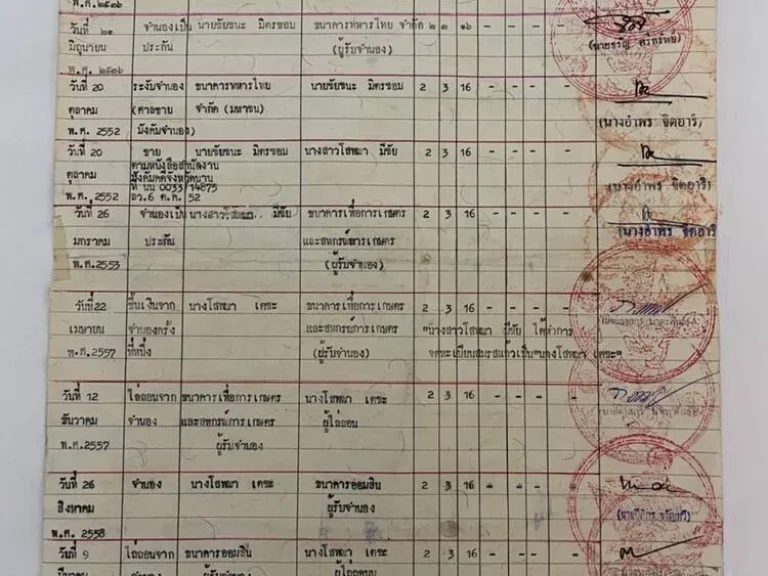 พ.ศ. ๒๕๓๖
วันที่ ๒๑ จำนองเป็น นายชัยชนะ มิตรชอบ ธนาคารทหารไทย จำกัด ๒ ๓ ๑๖
มิถุนายน ประกัน (ผู้รับจำนอง)
พ.ศ. ๒๕๓๖
วันที่ 20 ระงับจำนอง ธนาคารทหารไทย นายชัยชนะ มิตรชอบ 2 3 16 - - - -
ตุลาคม (ศาลขาย จำกัด (มหาชน)
พ.ศ. 2552 บังคับจำนอง) (นางอำพร จิตยารี)
วันที่ 20 ขาย นายชัยชนะ มิตรชอบ นางสาวโสพฌา มีชัย 2 3 16 - - - -
ตามหนังสือสำนักงาน
ตุลาคม บังคับคดีจังหวัดนาน
ที่ นน 0033/14875 (นางอำพร จิตยารี)
พ.ศ. 2552 ลว.6 ต.ค. 52
วันที่ 26 จำนองเป็น นางสาวโสพฌา มีชัย ธนาคารเพื่อการเกษตร 2 3 16 - - - -
(นางอำพร จิตยารี
มกราคม ประกัน และสหกรณ์การเกษตร
พ.ศ. 2553 (ผู้รับจำนอง)
วันที่22 ขึ้นเงินจาก นางโสพฌา เตชะ ธนาคารเพื่อการเกษตร 2 3 16 - - - -
เมษายน จำนองครั้ง และสหกรณ์การเกษตร "นางสาวโสพฌา มีชัย ได้ทำการ
พ.ศ.2557 ที่หนึ่ง (ผู้รับจำนอง) จดทะเบียนสมรสแล้วเป็น"นางโสพฌา เตชะ"
วันที่ 12 ไถ่ถอนจาก ธนาคารเพื่อการเกษตร นางโสพฌา เตชะ 2 3 16 - - - -
ธันวาคม จำนอง และสหกรณ์การเกษตร ผู้ไถ่ถอน
พ.ศ.2557 ผู้รับจำนอง
วันที่ 26 จำนอง นางโสพฌา เตชะ ธนาคารออมสิน 2 3 16 - - - -
สิงหาคม ผู้รับจำนอง
พ.ศ. 2558
วันที่ 9 ไถ่ถอนจาก ธนาคารออมสิน นางโสพฌา เตชะ 2 3 16 - - - -
มีนาคม จำนอง ผู้รับจำนอง ผู้ไถ่ถอน